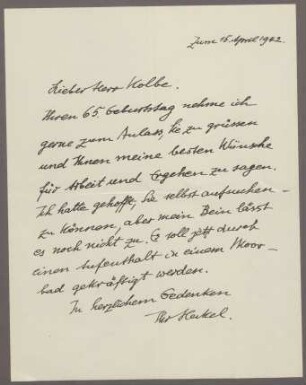 Zum 15 April 1942
Lieber Herr Kolbe.
Ihren 65. Geburtstag nehme ich
gerne zum Anlass, Sie zu grüssen
und Ihnen meine besten Wünsche
für Arbeit und Ergehen zu sagen.
Ich hatte gehofft, Sie selbst aufsuchen-
zu können, aber mein Bein lässt
es noch nicht zu. Es soll jetzt durch
einen Aufenthalt in einem Moor-
bad gekräftigt werden.
In herzlichem Gedenken
Ihr Heckel.